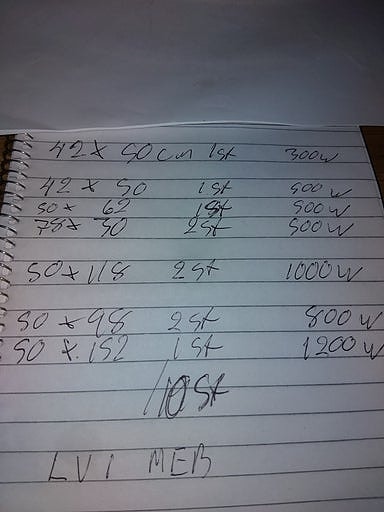 42 x 50 cm 1st 300w
42 x 50 1st 500w
50 x 62 1st 500w
78 x 50 2st 500w
50 x 118 2st 1000w
50 x 98 2st 800w
50 x 152 1st 1200w
10st
LVI MEB